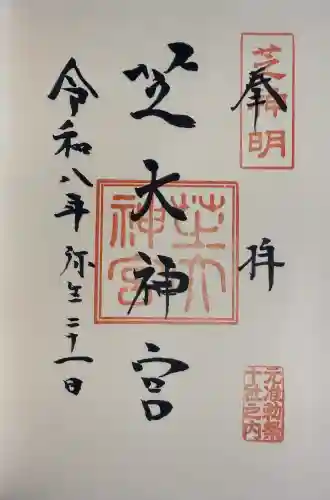 奉拝
芝神明
芝大神宮
芝大神宮
元准勅祭
十社之内
令和八年弥生二十一日